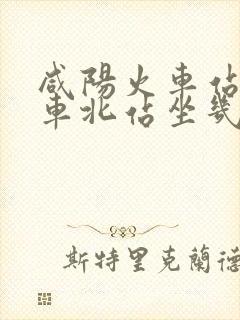 咸陽火車佔
車北佔坐幾
斯特里克蘭德